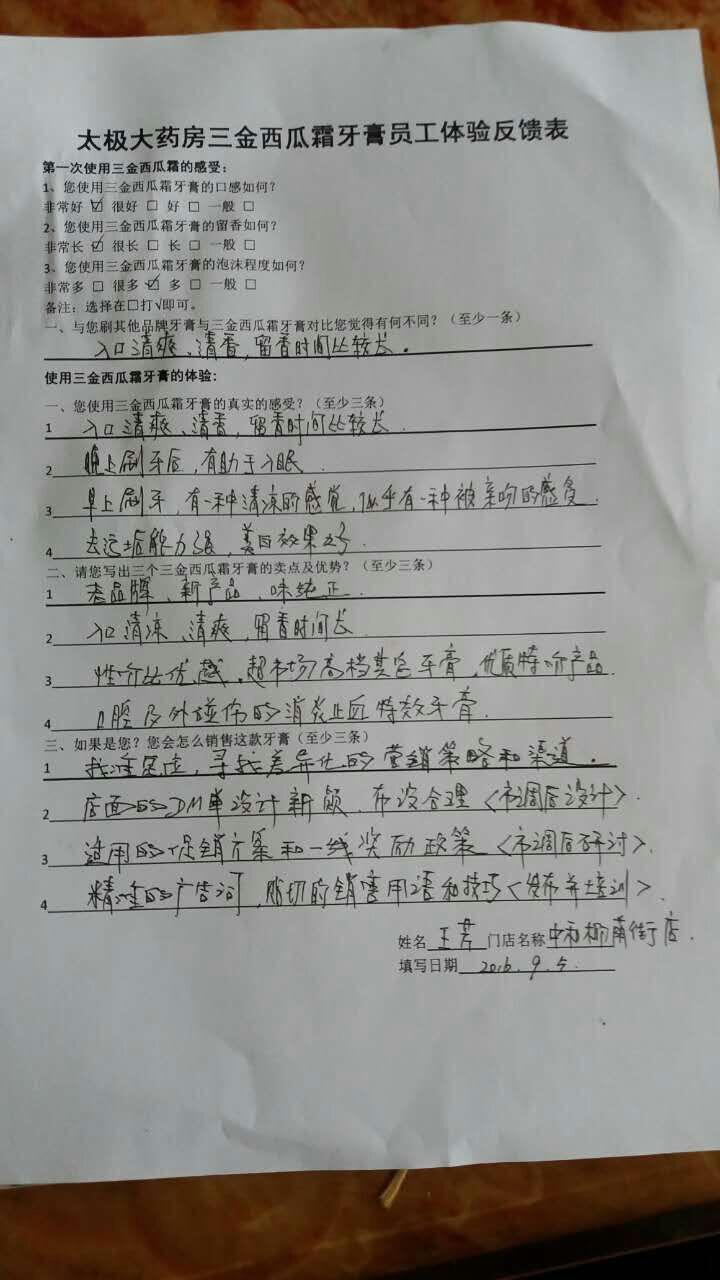 太极大药房三金西瓜霜牙膏员工体验反馈表
第一次使用三金西瓜霜的感受：
1、您使用三金西瓜霜牙膏的口感如何？
非常好 ☑ 很好 □ 好 □ 一般 □
2、您使用三金西瓜霜牙膏的留香如何？
非常长 ☑ 很长 □ 长 □ 一般 □
3、您使用三金西瓜霜牙膏的泡沫程度如何？
非常多 □ 很多 ☑ 多 □ 一般 □
备注：选择在□打√即可。
一、与您刷其他品牌牙膏与三金西瓜霜牙膏对比您觉得有何不同？（至少一条）
入口清爽、清香，留香时间比较长。
使用三金西瓜霜牙膏的体验：
一、您使用三金西瓜霜牙膏的真实的感受？（至少三条）
1 入口清爽、清香，留香时间比较长.
2 晚上刷牙后，有助于入眠.
3 早上刷牙，有一种清凉的感觉，似乎有一种被亲吻的感受.
4 去污垢能力强，美白效果好.
二、请您写出三个三金西瓜霜牙膏的卖点及优势？（至少三条）
1 老品牌、新产品、味纯正.
2 入口清凉、清爽，留香时间长.
3 性价比优越，超市场高档其它牙膏，优质特价产品.
4 口腔及外碰伤的消炎止血特效牙膏.
三、如果是您？您会怎么销售这款牙膏（至少三条）
1 找准定位，寻找差异化的营销策略和渠道。
2 店面的DM单设计新颖，布设合理〈市调后设计〉.
3 适用的促销方案和一线奖励政策〈市调后研讨〉.
4 精准的广告词，贴切的销售用语和技巧〈发布并培训〉.
姓名 王芳 门店名称 中和柳荫街店.
填写日期 2016.9.5